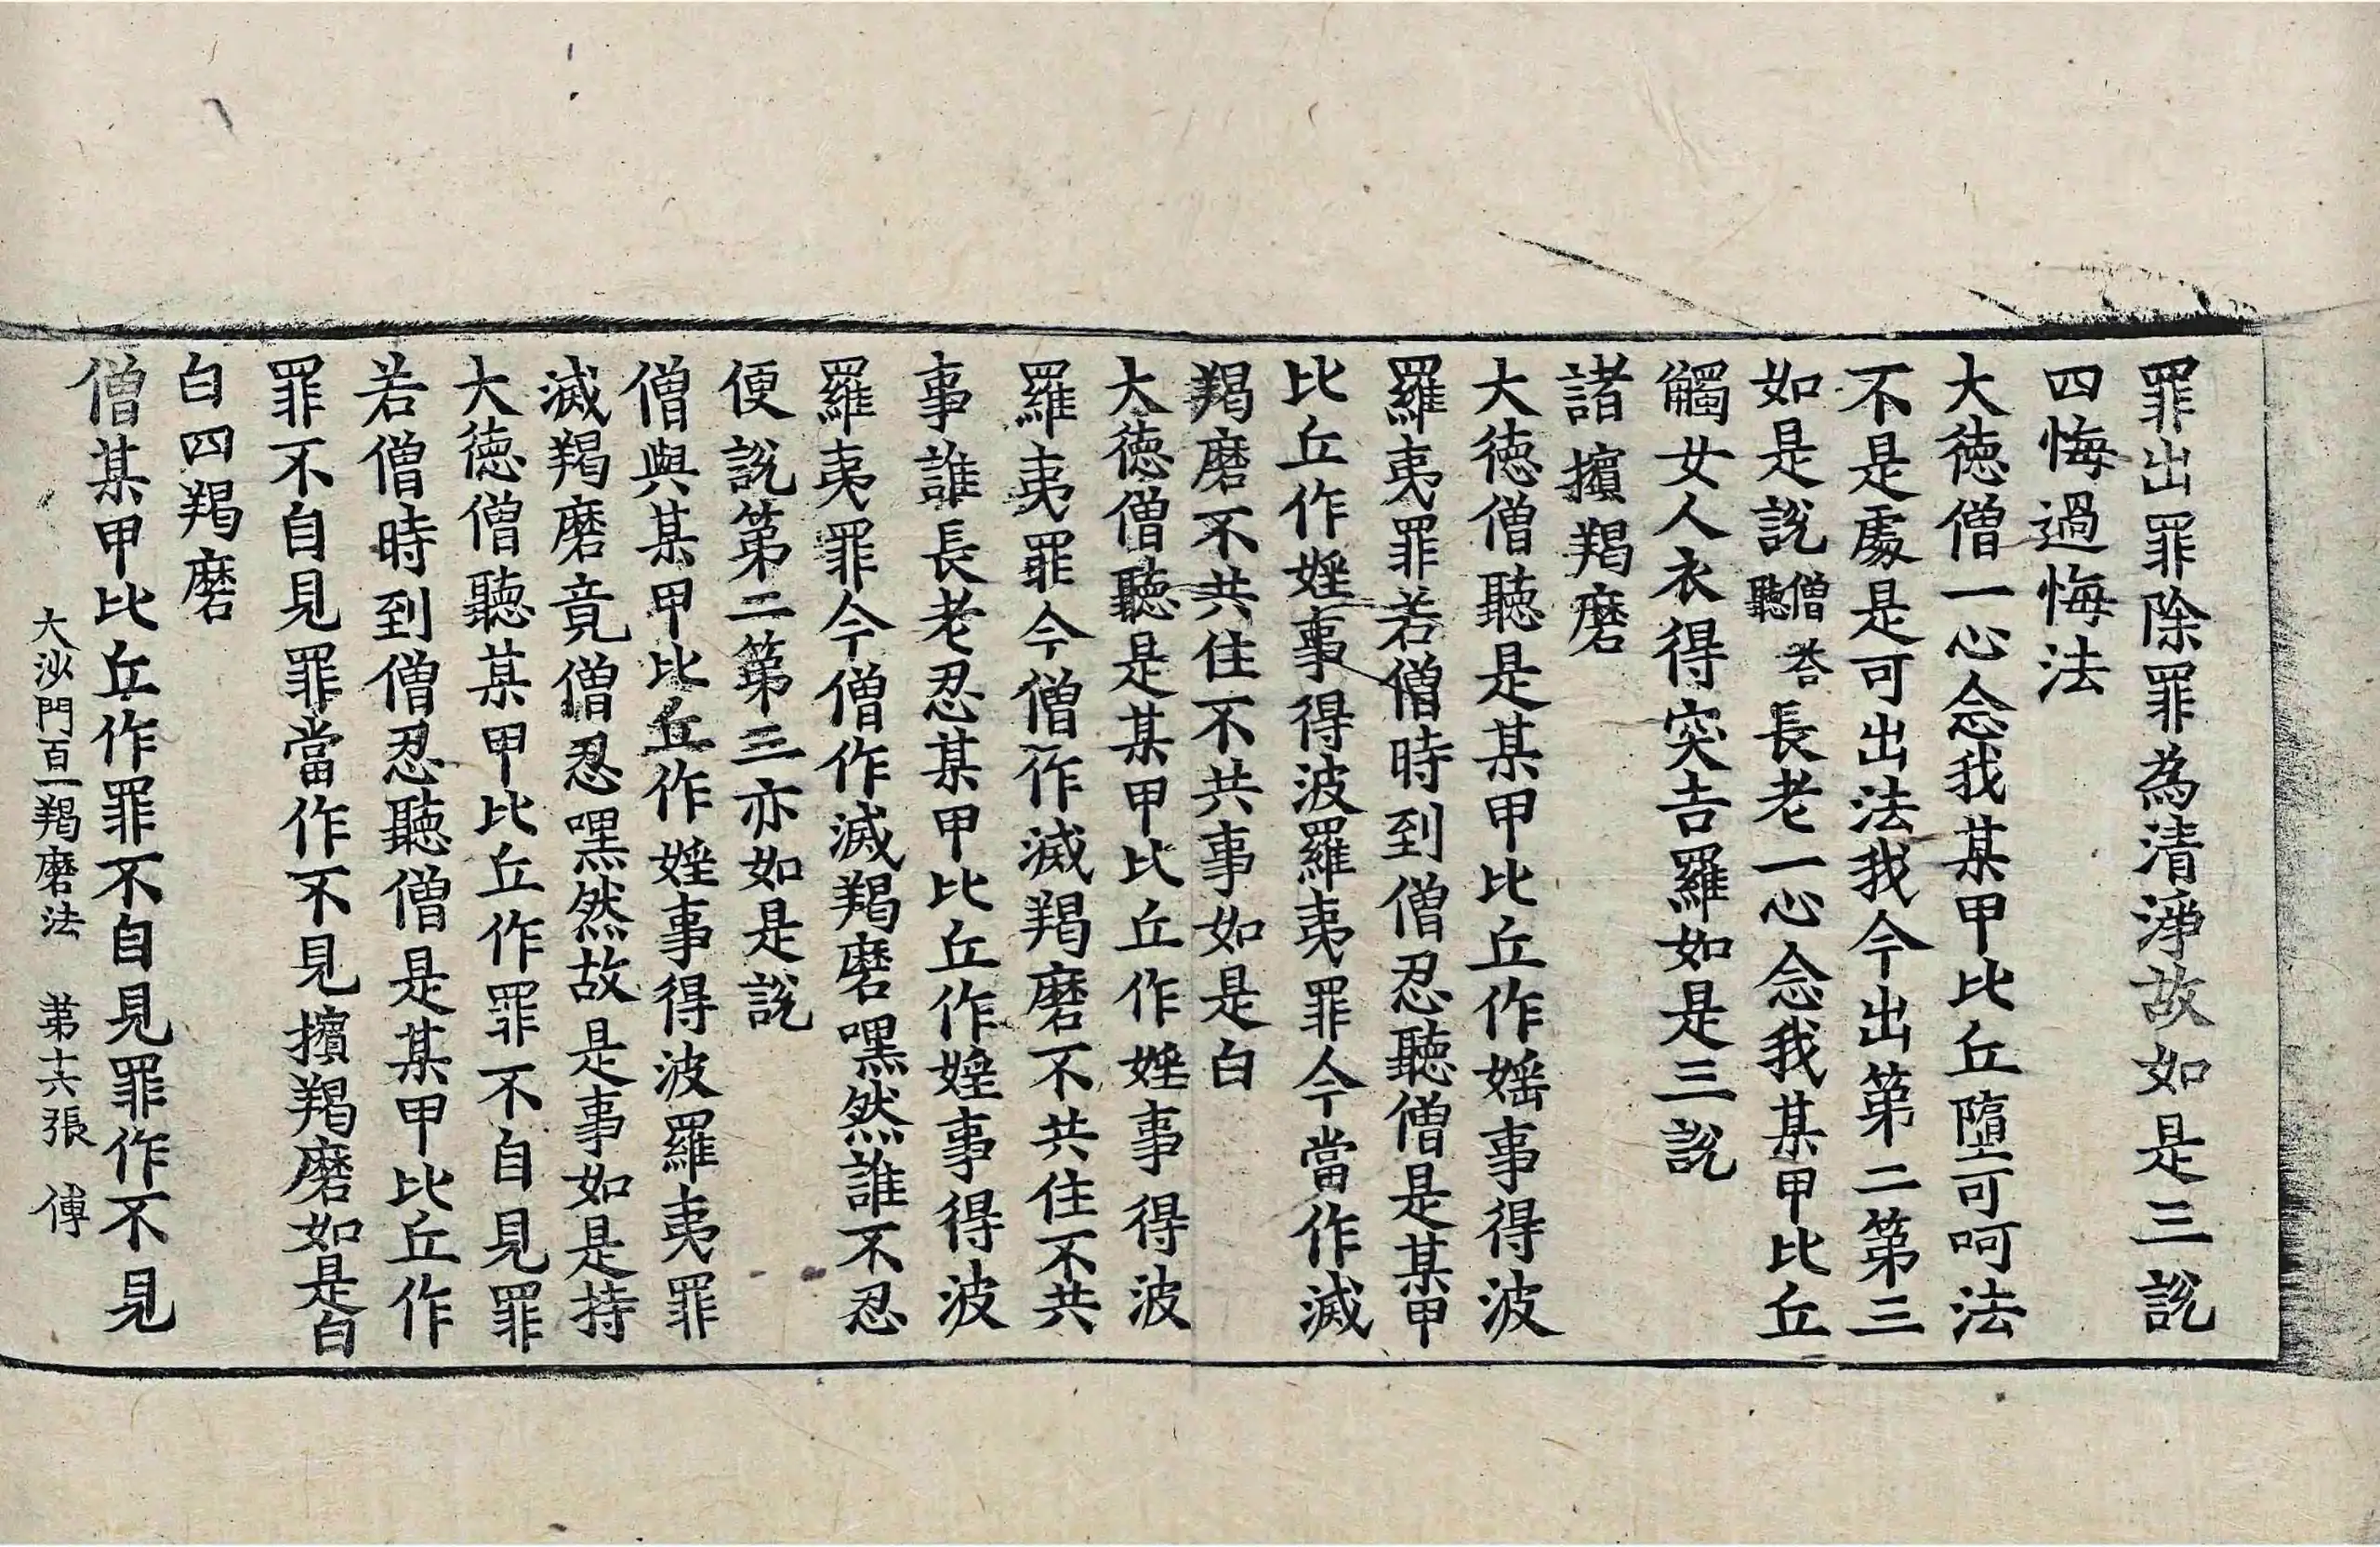 罪出罪除罪為清淨故如是三説
四悔過悔法
大徳僧一心念我某甲比丘墮可呵法
不是處是可出法我今出第二第三
如是説僧荅聽長老一心念我某甲比丘
觸女人衣得突吉羅如是三説
諸擯羯磨
大徳僧聽是某甲比丘作婬事得波
羅夷罪若僧時到僧忍聽僧是某甲
比丘作婬事得波羅夷罪今當作滅
羯磨不共住不共事如是白
大徳僧聽是某甲比丘作婬事得波
羅夷罪今僧作滅羯磨不共住不共
事誰長老忍某甲比丘作婬事得波
羅夷罪今僧作滅羯磨嘿然誰不忍
便説第二第三亦如是説
僧與某甲比丘作婬事得波羅夷罪
滅羯磨竟僧忍嘿然故是事如是持
大徳僧聽某甲比丘作罪不自見罪
若僧時到僧忍聽僧是某甲比丘作
罪不自見罪當作不見擯羯磨如是白
白四羯磨
僧某甲比丘作罪不自見罪作不見
大沙門百一羯磨法　第十六張　傅